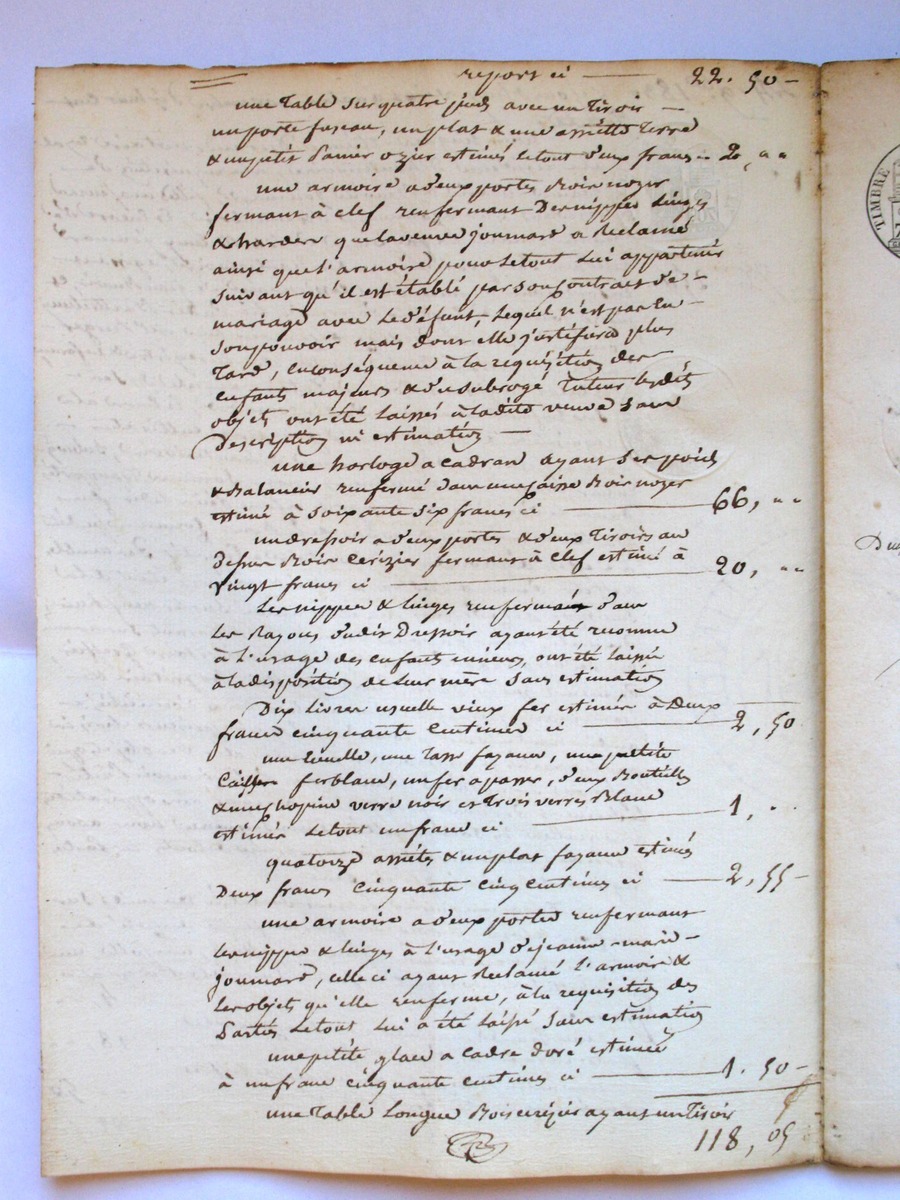 report ci — 22. 50 —
une Table sur quatre pieds avec un Tiroir —
un porte fuseau, un plat & une assiette Terre
& un petit Panier ozier estimés le tout deux francs 2, " "
une armoire a deux portes Bois noyer
fermant à clef renfermant Des nippes Linges
& hardes que la veuve joumard a Réclamé
ainsi que l'armoire pour le tout Lui appartenir
suivant qu'il est établé par son Contrat de —
mariage avec Le défunt, Lequel n'est pas En —
son pouvoir mais dont elle justifiera plus
Tard, En conséquence à la requisition des
Enfants majeurs & du subrogé Tuteur lesdits
objets ont été laissés à ladite veuve sans
Description ni estimation —
une horloge a cadran ayant ses poids
& Balancier renfermé dans une Caisse Bois noyer
estimé à soixante six francs ci — 66, " "
un dressoir a deux portes & deux Tiroirs au
dessus Bois Cerizier fermant à Clef estimé à
vingt francs ci — 20, " "
Les nippes & linges renfermés dans
les Rayons dudit Dressoir ayant été reconnu
à l'usage des enfants mineurs, ont été laissé
à la disposition de Leur mère sans estimation
Dix Livres usuelle vieux fer estimée à Deux
francs cinquante Centimes ci — 2, 50
une Ecuelle, une Tasse fayance, une petite
ferblanc, un fer a passer, deux Bouteilles
& une chopine verre noir et Trois verres Blanc
estimés Le tout un franc ci — 1, " "
quatorze assiétes & un plat fayance estimés
Deux francs Cinquante Cinq Centimes ci — 2, 55 —
une armoire a deux portes renfermant
les nippes & linges à l'usage de jeanne-marie —
joumard, celle ci ayant Réclamé l'armoire &
Les objets qu'elle renferme, à la requisition des
Parties Le tout Lui a été laissé sans estimation
une petite glace a cadre doré estimée
à un franc cinquante Centimes ci — 1. 50 —
une Table Longue Bois cerizier ayant un Tiroir
118, 05
TIMBRE